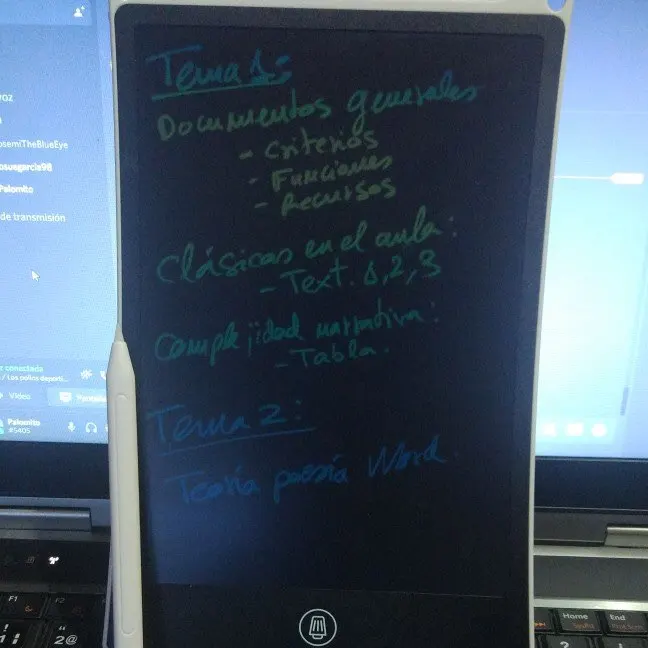 Tema 1:
Documentos generales
- Criterios
- Funciones
- Recursos
Clásicos en el aula:
- Text. 1, 2, 3
Complejidad narrativa:
- Tabla.
Tema 2:
Teoría poesía Word.
voz
osemiTheBlueEye
osuegarcia98
Palomito
de transmisión
conectada
/ Los pollos deporti...
Vídeo
Pantalla
Palomito
#5405
F1
F2
2@
Home
End
?